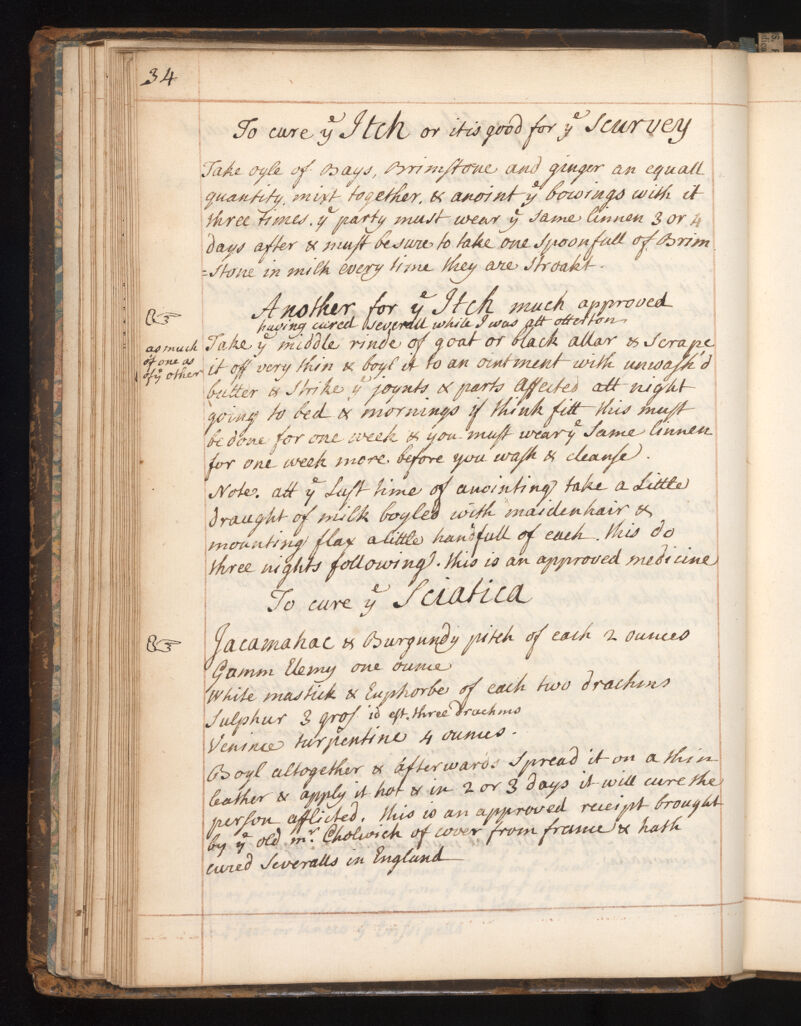 34
To cure yͤ Itch or itis good for yͤ Scurvey
Take oyle of Bays, Brimstone and ginger an equall
quantity, mixt together, & anoint yͤ bowings with it
three times. yͤ party must wear yͤ same linnen 3 or 4
days after & must be sure to take one spoonfull of Brim
=stone in milk every time they are stroakt.
Another for yͤ Itch much approved
having cured severall while I was att otterton
as much
of one as
of yͤ other
Take yͤ middle rinde of goat or black allar & scrape
it off very thin & boyl it to an ointment with unwash'd
butter & strike yͤ joynts & parts affected att night
going to bed & mornings if think fitt this must
be done for one week & you must wear yͤ same linnen
for one week more. before you wash & cleanse.
Note. att yͤ Last time of anointing take a Little
draught of milk boyled with maidenhair &
mounting flax a little handfull of each. this do
three nights following. this is an approved medicine
To cure yͤ Sciatica
Jacamahac & Burgundy pitch of each 2 ounces
Gamm Elemy one ounce
White mastick & Euphorbe of each two drachms
Sulphur 3 gros id est. three drachms
Venince turpentine 4 ounces.
Boyl altogether & afterwards spread it on a thin
leather & apply it hot & in 2 or 3 days it will cure the
person afflicted. this is an approved receipt brought
by yͤ old mʳ. Cholwich of cover from france & hath
cured Severalls in England